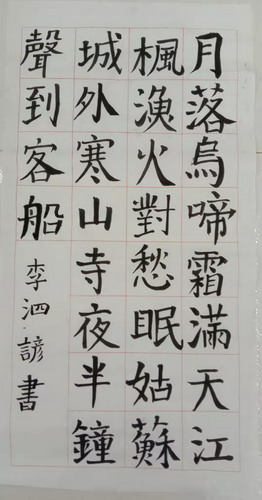 月落烏啼霜滿天江
楓漁火對愁眠姑蘇
城外寒山寺夜半鐘
聲到客船
李泗諺書